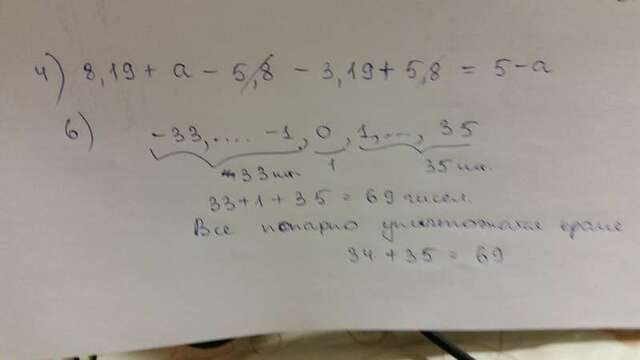 4) 8,19 + a - 5,8 - 3,19 + 5,8 = 5 - a
6) -33, .... -1, 0, 1, ..., 35
33 шт. 1 35 шт.
33 + 1 + 35 = 69 чисел.
Все попарно уничтожатся кроме
34 + 35 = 69